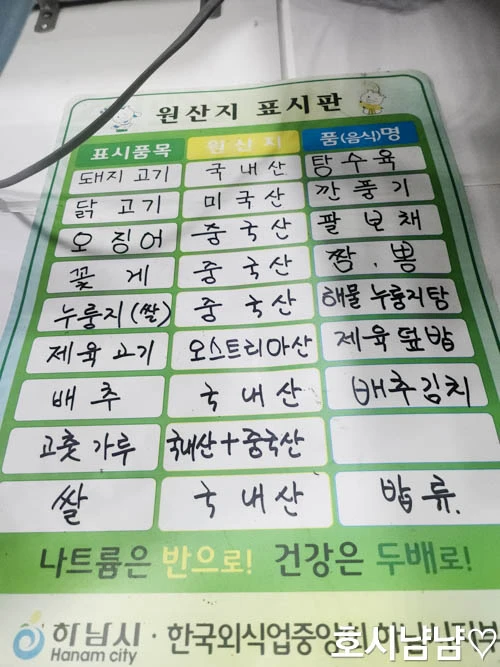 원산지 표시판
표시품목 원산지 품(음식)명
돼지고기 국내산 탕수육
닭고기 미국산 깐풍기
오징어 중국산 팔보채
꽃게 중국산 짬.뽕
누룽지(쌀) 중국산 해물누룽지탕
제육고기 오스트리아산 제육덮밥
배추 국내산 배추김치
고춧가루 국내산+중국산
쌀 국내산 밥류.
나트륨은 반으로! 건강은 두배로!
하남시 · 한국외식업중앙회
Hanam city
호시냠냠♡